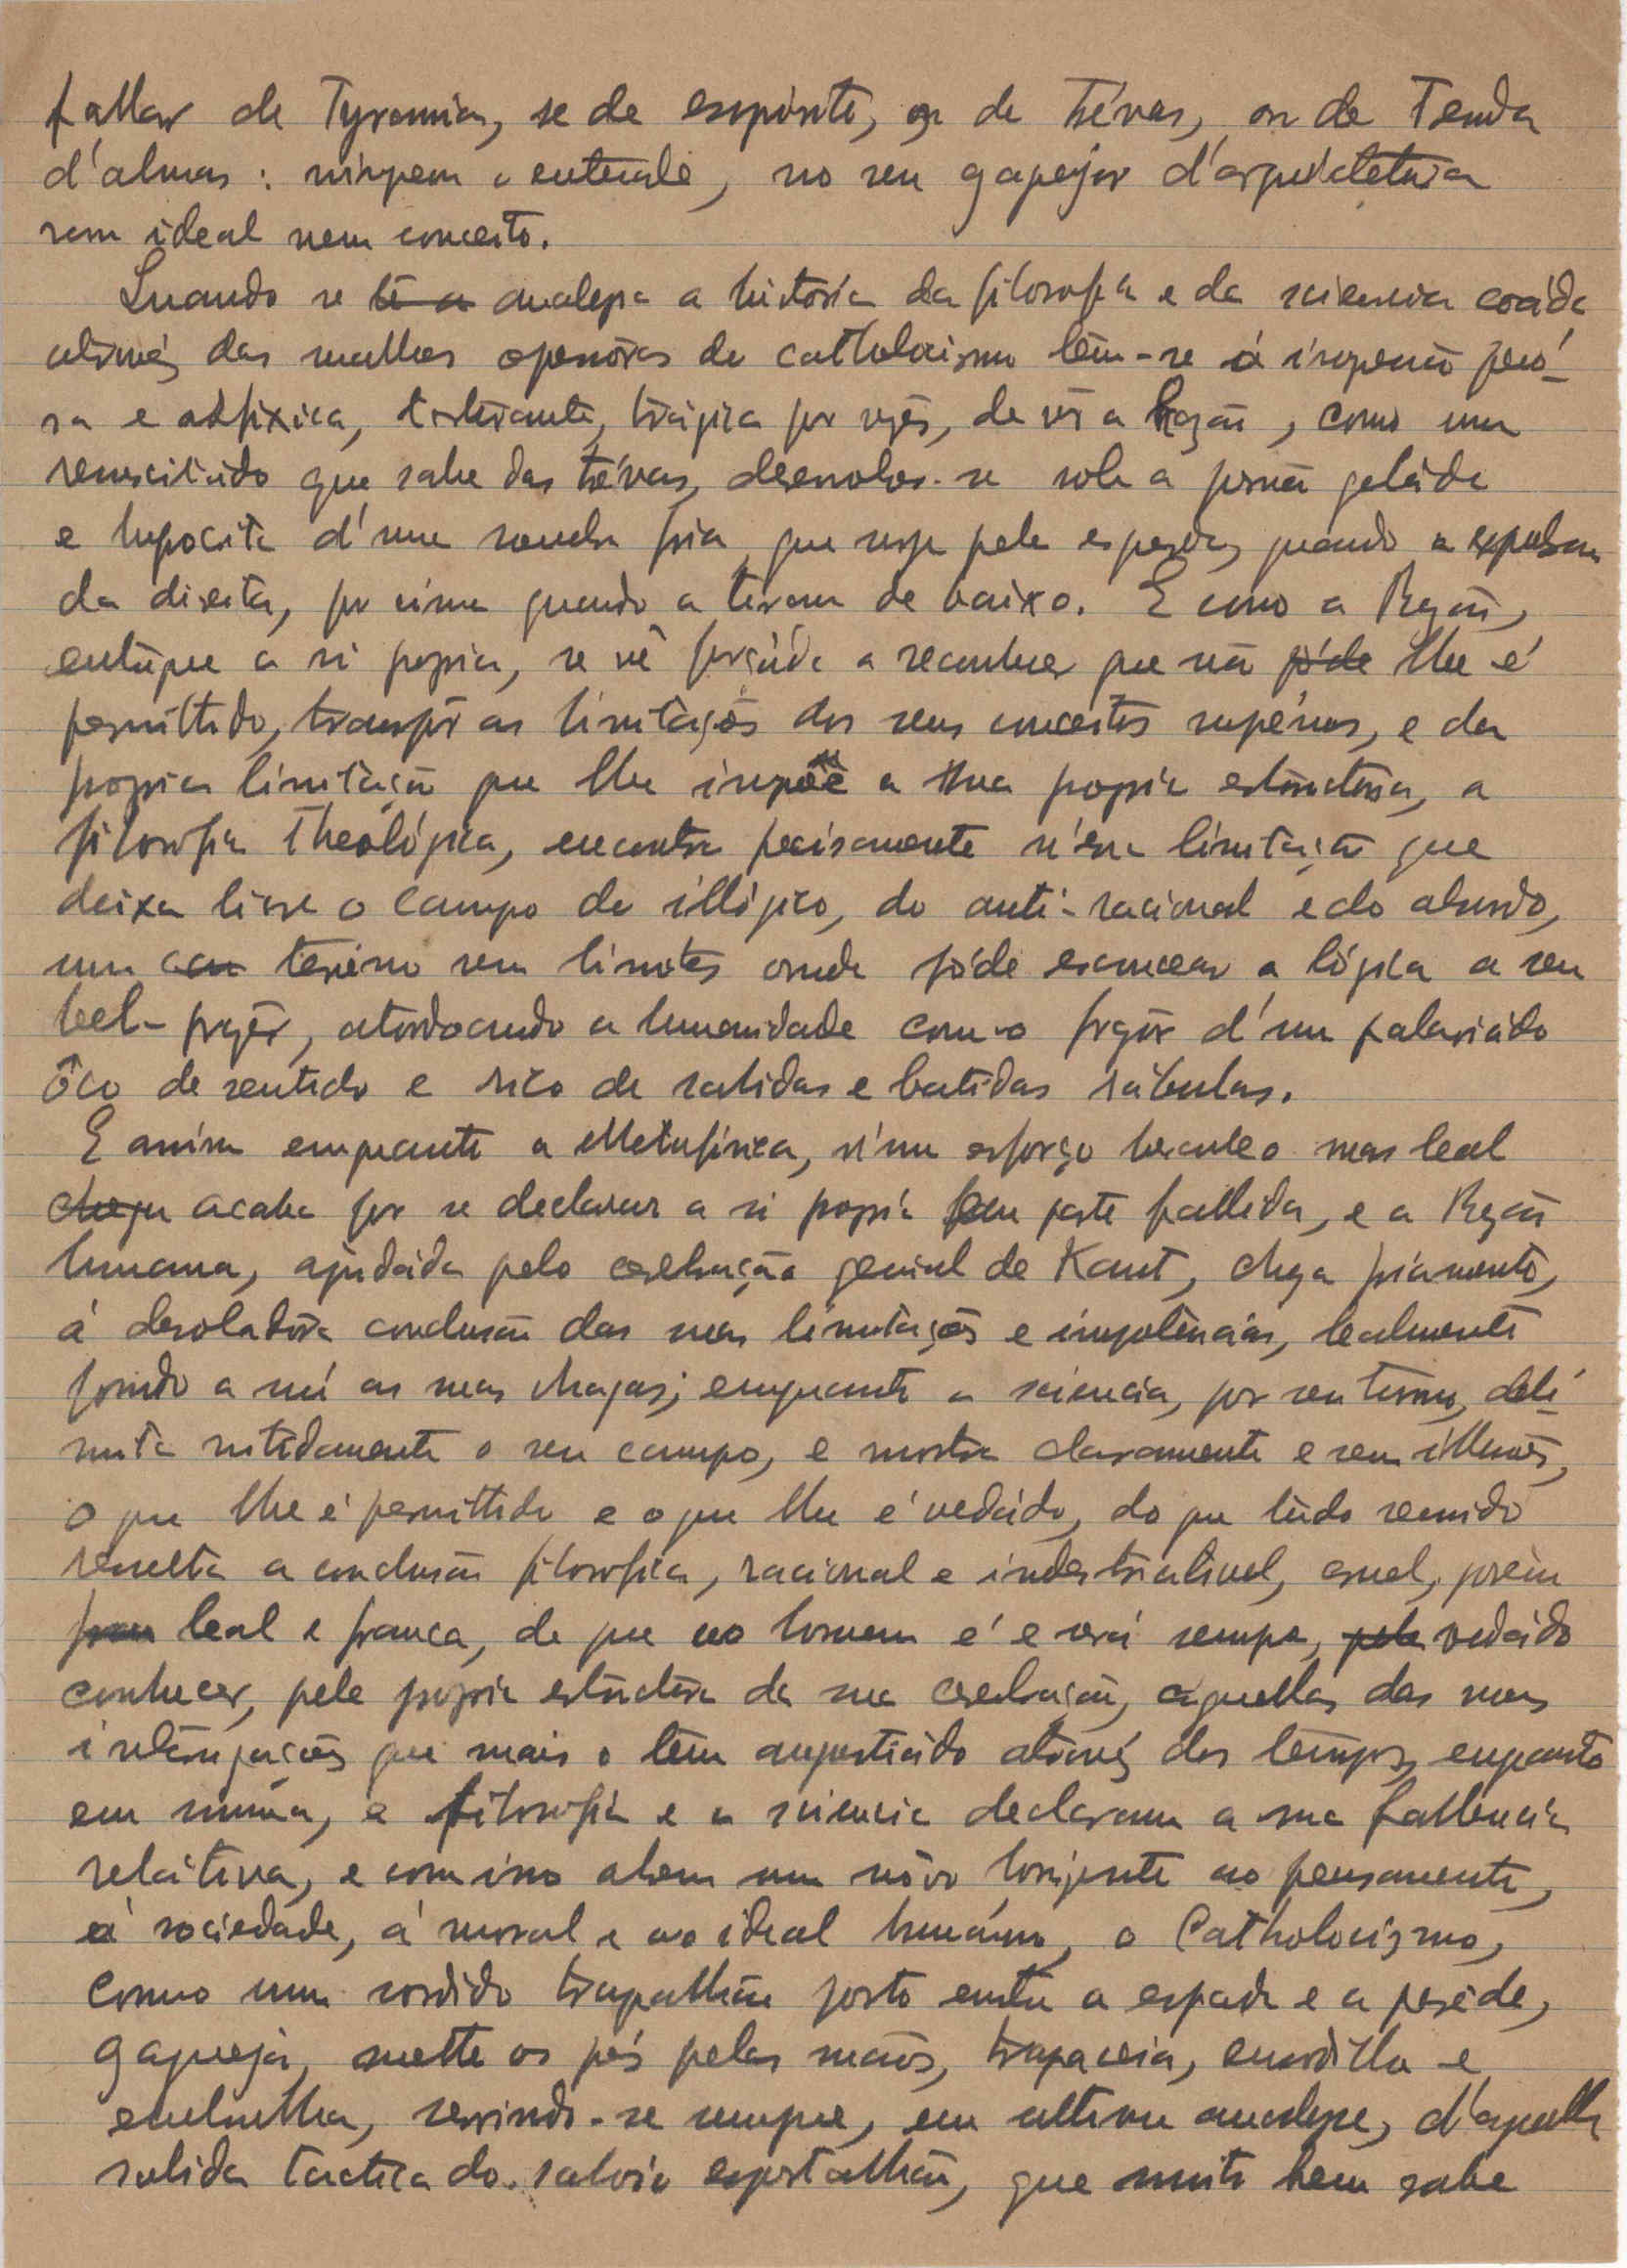 fallar de Tyrannia, se de espirito, ou de trévas, ou de Tenda
d'almas: ninguem o entende, no seu gaguejar d'arquitetura
sem ideal nem conceito.
Quando se lê a analysa a historia da filosofia e da sciencia coáda
atravéz das malhas opressôras do catholocismo têm-se á impressão penó-
sa e asfixica, torturante, trágica por vezes, de vêr a Razão, como um
resuscitádo que sahe das trévas, desenvolver-se sob a pressão geláda
e hypocrita d'uma sombra fria, que surge pela esquerda, quando a expulsam
da direita, por cima quando a tiram de baixo. E como a Razão,
entregue a si propria, se vê forçáda a reconhecer que não póde lhe é
permittido, transpôr as limitações dos seus conceitos supérios, e da
propria limitação que lhe impõe a sua propria estructura, a
filosofia theológica, encontra precisamente n'essa limitação que
deixa livre o campo do illógico, do anti-racional e do absurdo,
um terrêno sem limites onde póde escoucear a lógica a seu
bel-prazêr, atordoando a humanidade com o fragôr d'um palavriádo
ôco de sentido e rico de sahidas e batidas rábulas.
E assim emquanto a Metafisica, n'um esforço herculeo mas leal
chega acaba por se declarar a si propria em parte fallida, e a Razão
humana, ajudáda pela cerebração genial de Kant, chega friamente,
á desoladôra conclusão das suas limitações e impotências, lealmente
pondo a nú as suas chagas; emquanto a sciencia, por seu turno, deli-
mita nitidamente o seu campo, e mostra claramente e sem illusões,
o que lhe é permittido e o que lhe é vedádo, do que tudo reunido
resulta a conclusão filosofica, racional e indestrutivel, cruel, porém
leal e franca, de que ao homem é e será sempre, pela vedádo
conhecer, pela propria estructura da sua cerebração, aquellas das suas
interrogações que mais o têm angustiádo atravéz dos tempos, emquanto
em summa, a filosofia e a sciencia declaram a sua fallencia
relativa, e com isso abrem um nôvo horizonte ao pensamento,
á sociedade, á moral e ao ideal humâno, o Catholocismo,
como um sordido trapalhão posto entre a espada e a parêde,
gagueja, mette os pés pelas mãos, trapaceia, enrodilha e
embrulha, servindo-se sempre, em ultima analyse, d'aquella
sabida tactica do saloio espertalhão, que muito bem sabe